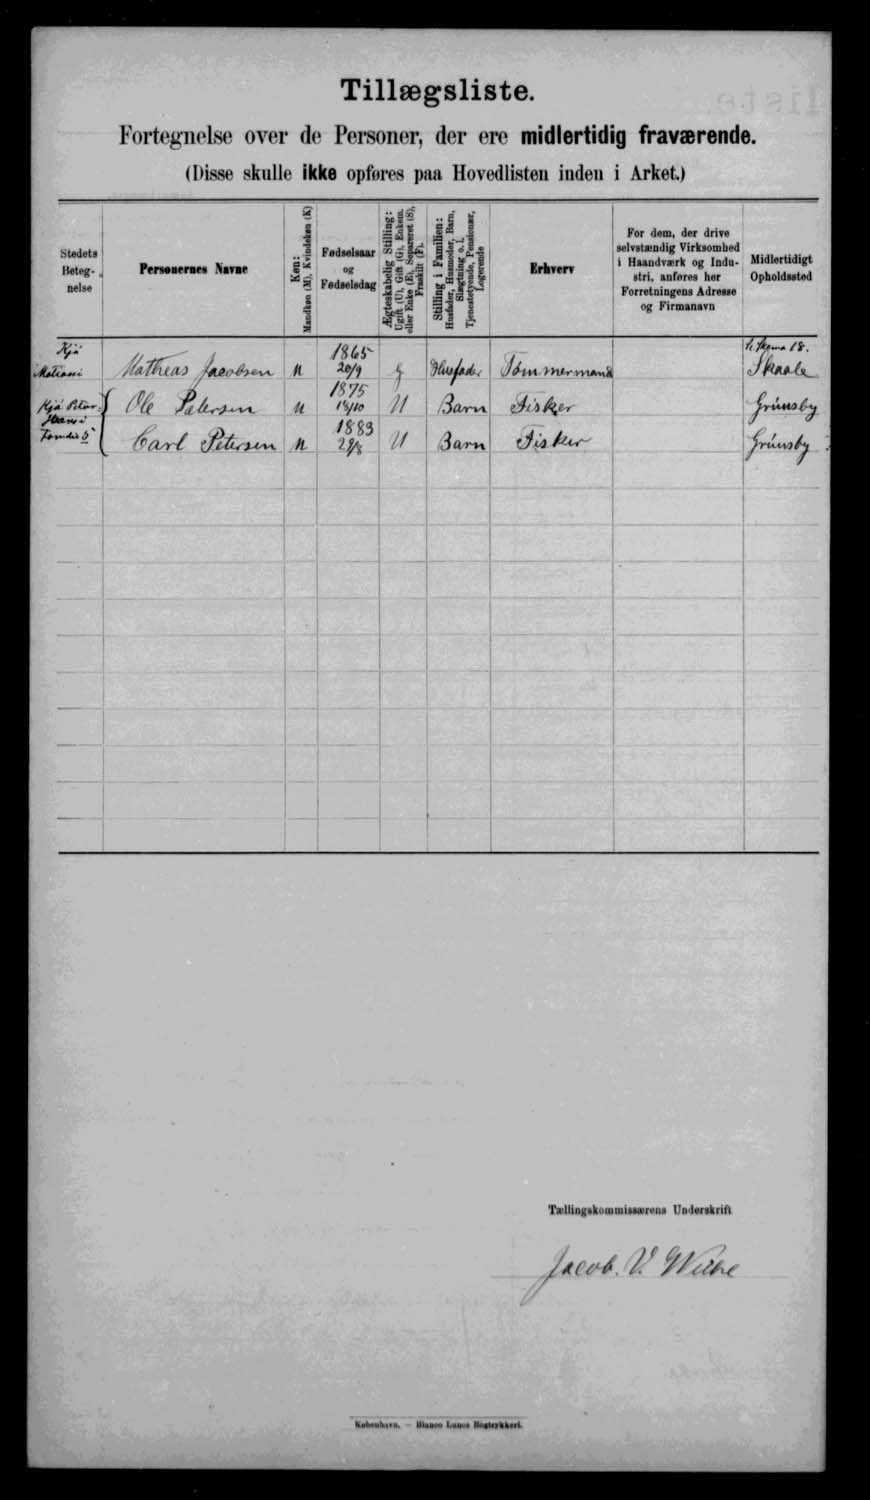 Tillægsliste.
Fortegnelse over de Personer, der ere midlertidig fraværende.
(Disse skulle ikke opføres paa Hovedlisten inden i Arket.)
Stedets Betegnelse
Personernes Navne
Køn:
Mandkøn (M), Kvindekøn (K)
Fødselsaar
og
Fødselsdag
Ægteskabelig Stilling:
Ugift (U), Gift (G), Enkem.
eller Enke (E), Separeret (S),
Fraskilt (F).
Stilling i Familien:
Husfader, Husmoder, Barn,
Slægtning o. l.
Tjenestetyende, Pensionær,
Logerende
Erhverv
For dem, der drive
selvstændig Virksomhed
i Haandværk og Indu-
stri, anføres her
Forretningens Adresse
og Firmanavn
Midlertidigt
Opholdssted
Kjá 1865 18.
Matheas Jacobsen M 20/9 G Husfader Tømmermand Skaale
1875
Kjá Ole Petersen M 18/10 U Barn Fisker Grimsby
1883
Carl Petersen M 29/8 U Barn Fisker Grimsby
Tællingskommissærens Underskrift
Jacob. V.
København. — Bianco Lunos Bogtrykkeri.